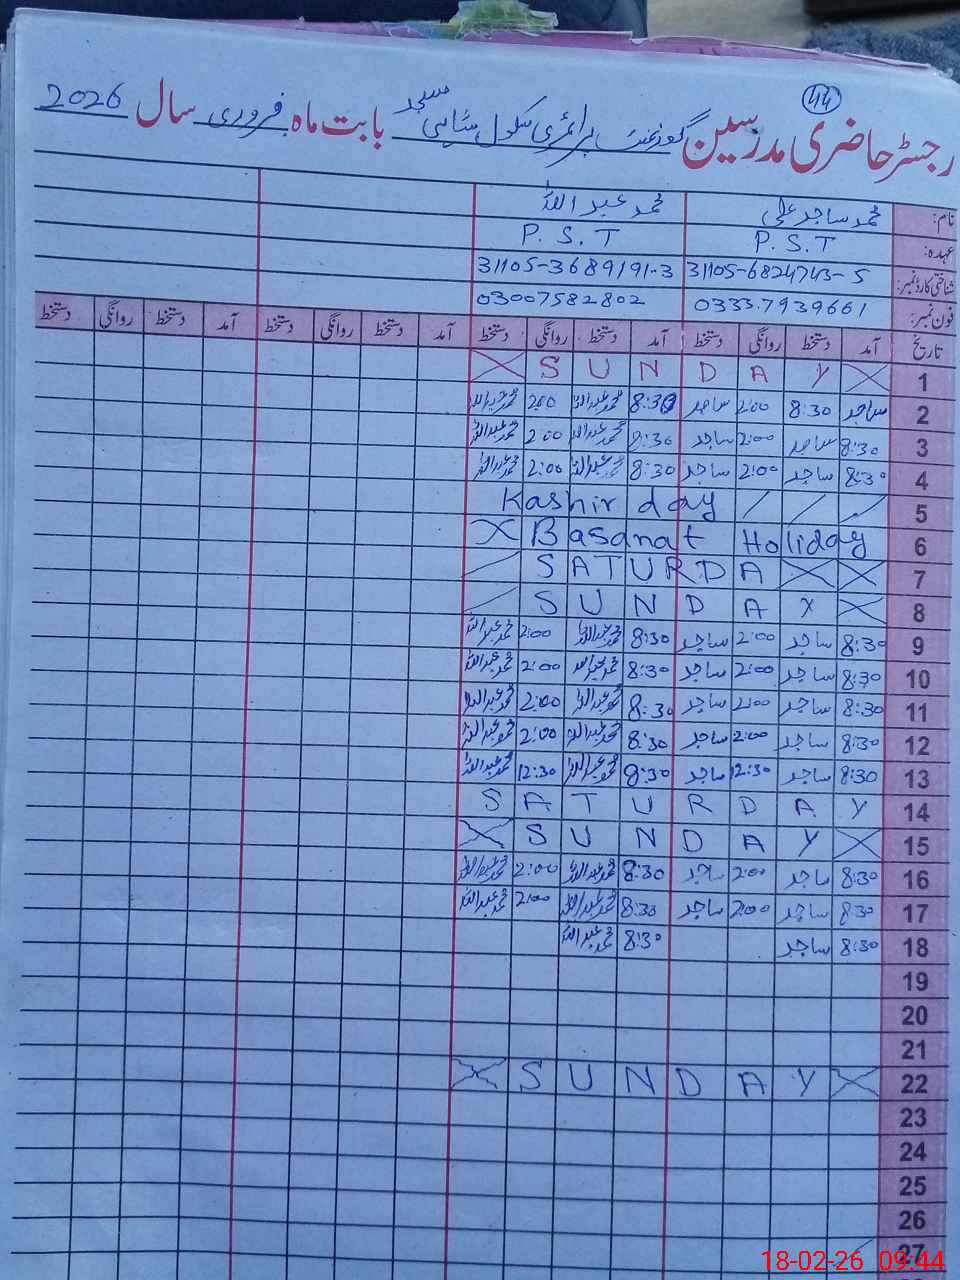 44
رجسٹر حاضری مدرسین گورنمنٹ پرائمری سکول شاہی مسجد بابت ماہ فروری سال 2026
نام: محمد ساجد علی محمد عبداللہ
عہدہ: P.S.T P.S.T
شناختی کارڈ نمبر: 31105-6824743-5 31105-3689191-3
فون نمبر: 0333-7939661 03007582802
تاریخ آمد دستخط روانگی دستخط آمد دستخط روانگی دستخط آمد دستخط روانگی دستخط آمد دستخط روانگی دستخط
1 SUNDAY
2 ساجد 8:30 2:00 ساجد 8:30 محمد عبداللہ 2:00 محمد عبداللہ
3 8:30 ساجد 2:00 ساجد 8:30 محمد عبداللہ 2:00 محمد عبداللہ
4 8:30 ساجد 2:00 ساجد 8:30 محمد عبداللہ 2:00 محمد عبداللہ
5 Kashir day
6 Basanat Holiday
7 SATURDA
8 SUNDAY
9 8:30 ساجد 2:00 ساجد 8:30 محمد عبداللہ 2:00 محمد عبداللہ
10 8:30 ساجد 2:00 ساجد 8:30 محمد عبداللہ 2:00 محمد عبداللہ
11 8:30 ساجد 2:00 ساجد 8:30 محمد عبداللہ 2:00 محمد عبداللہ
12 8:30 ساجد 2:00 ساجد 8:30 محمد عبداللہ 2:00 محمد عبداللہ
13 8:30 ساجد 12:30 ساجد 8:30 محمد عبداللہ 12:30 محمد عبداللہ
14 SATURDAY
15 SUNDAY
16 8:30 ساجد 2:00 ساجد 8:30 محمد عبداللہ 2:00 محمد عبداللہ
17 8:30 ساجد 2:00 ساجد 8:30 محمد عبداللہ 2:00 محمد عبداللہ
18 8:30 ساجد 8:30 محمد عبداللہ
19
20
21
22 SUNDAY
23
24
25
26
27
18-02-26 09:44